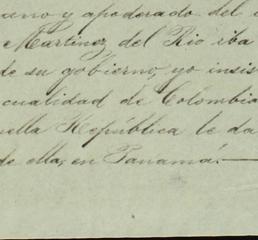 y apoderado del
Martinez del Rio iba
de su gobierno, yo insis
cualidad de Colombia
uella República le da
de ella, en Panamá.—